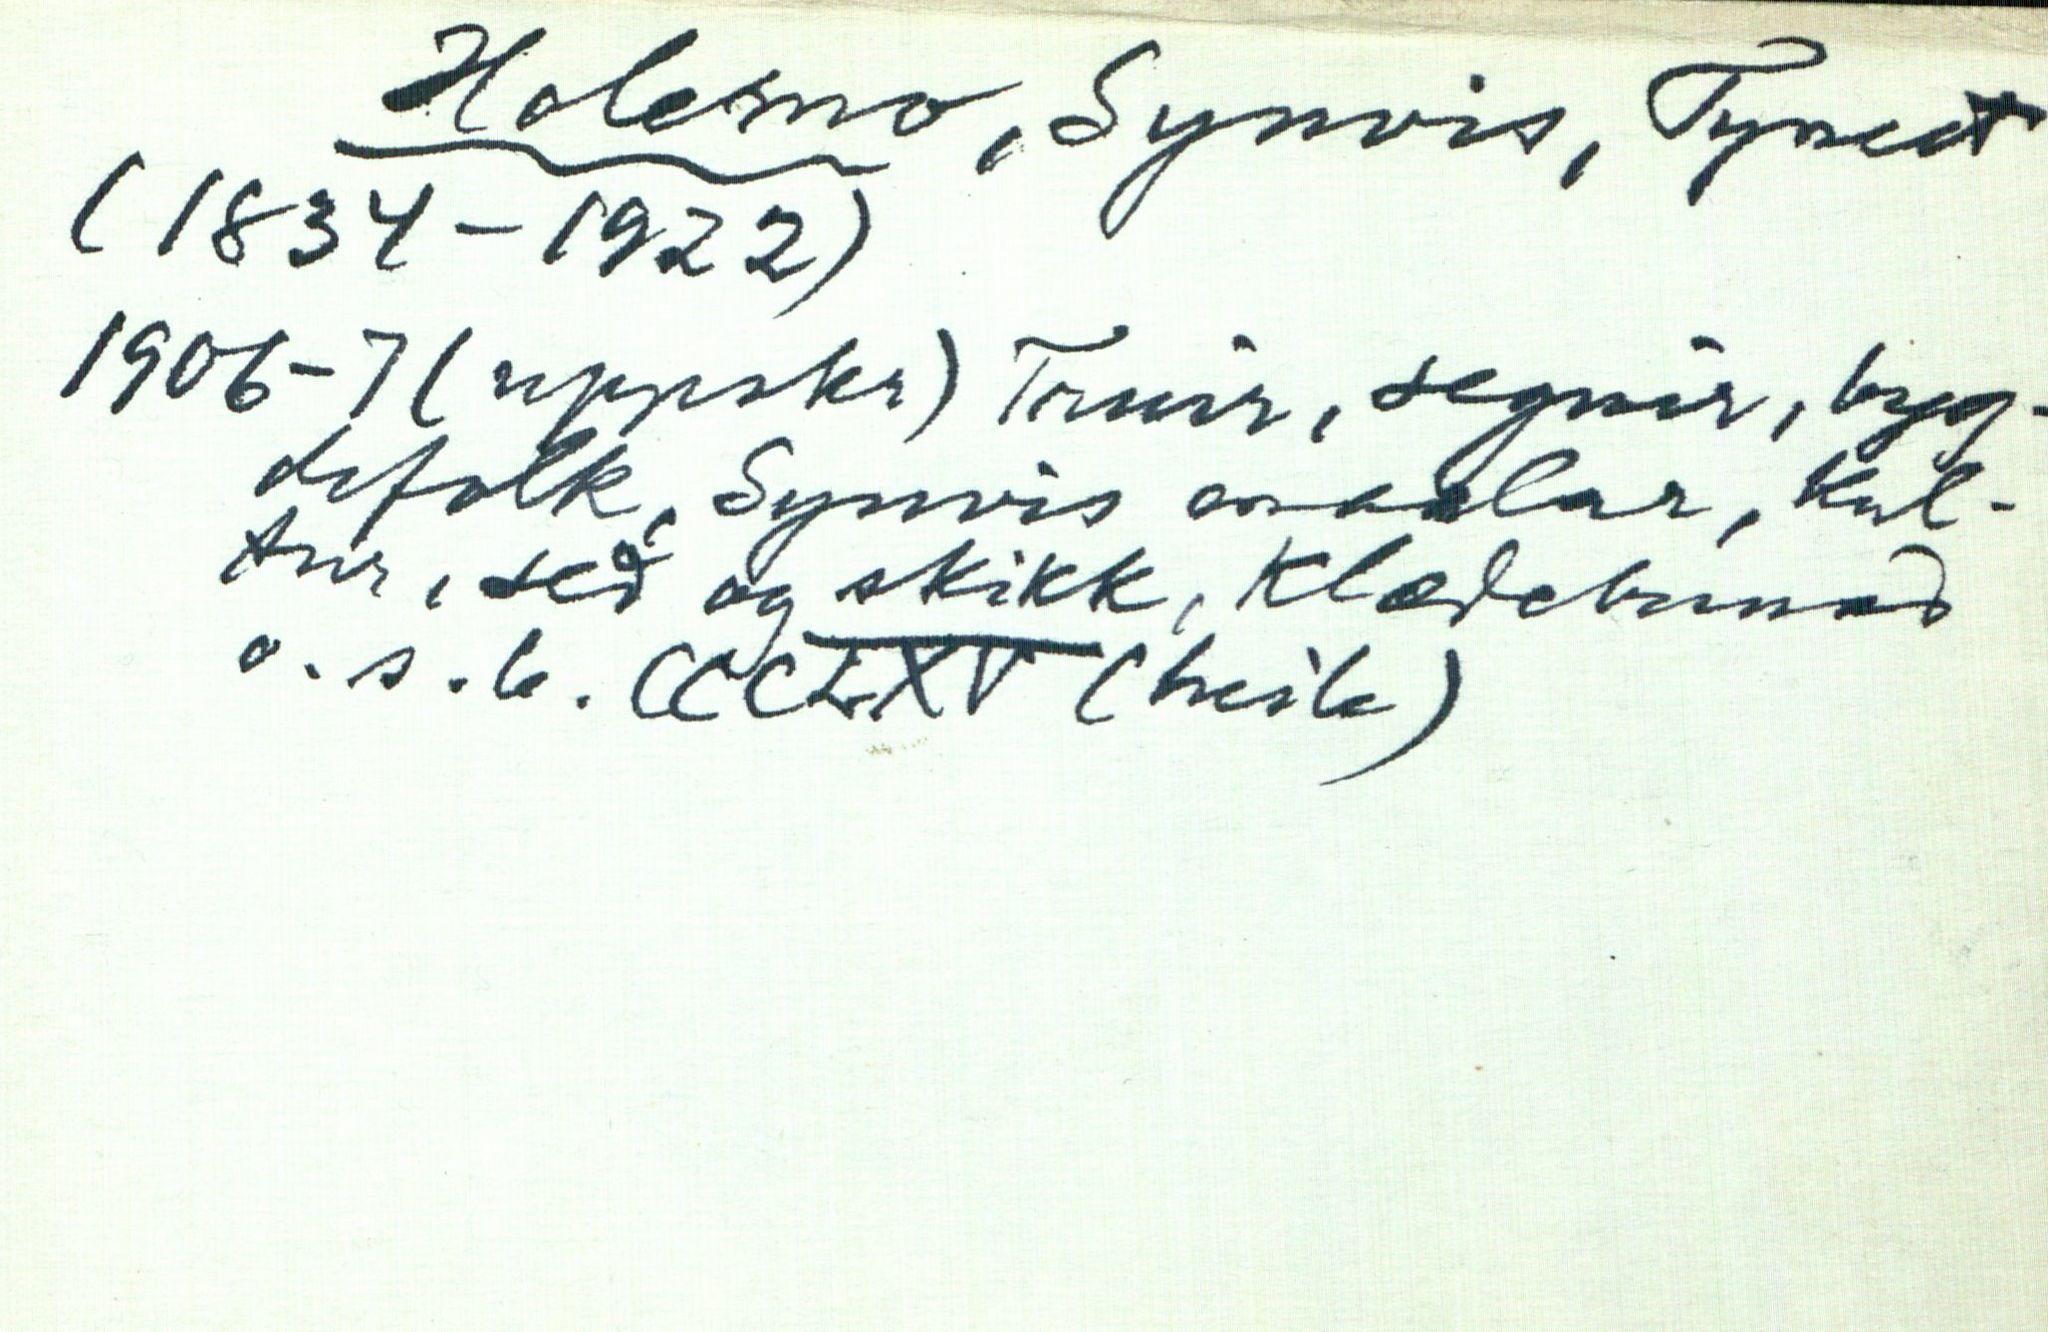 Holemo, Synvis, Tynset
(1834-1922)
1906-7 (uppskr) Truir, segnir, byg-
defolk, Synvis omaalar, kul-
tur, sed og skikk, Klædebunad
o. s. b. CCCLXV (heile)